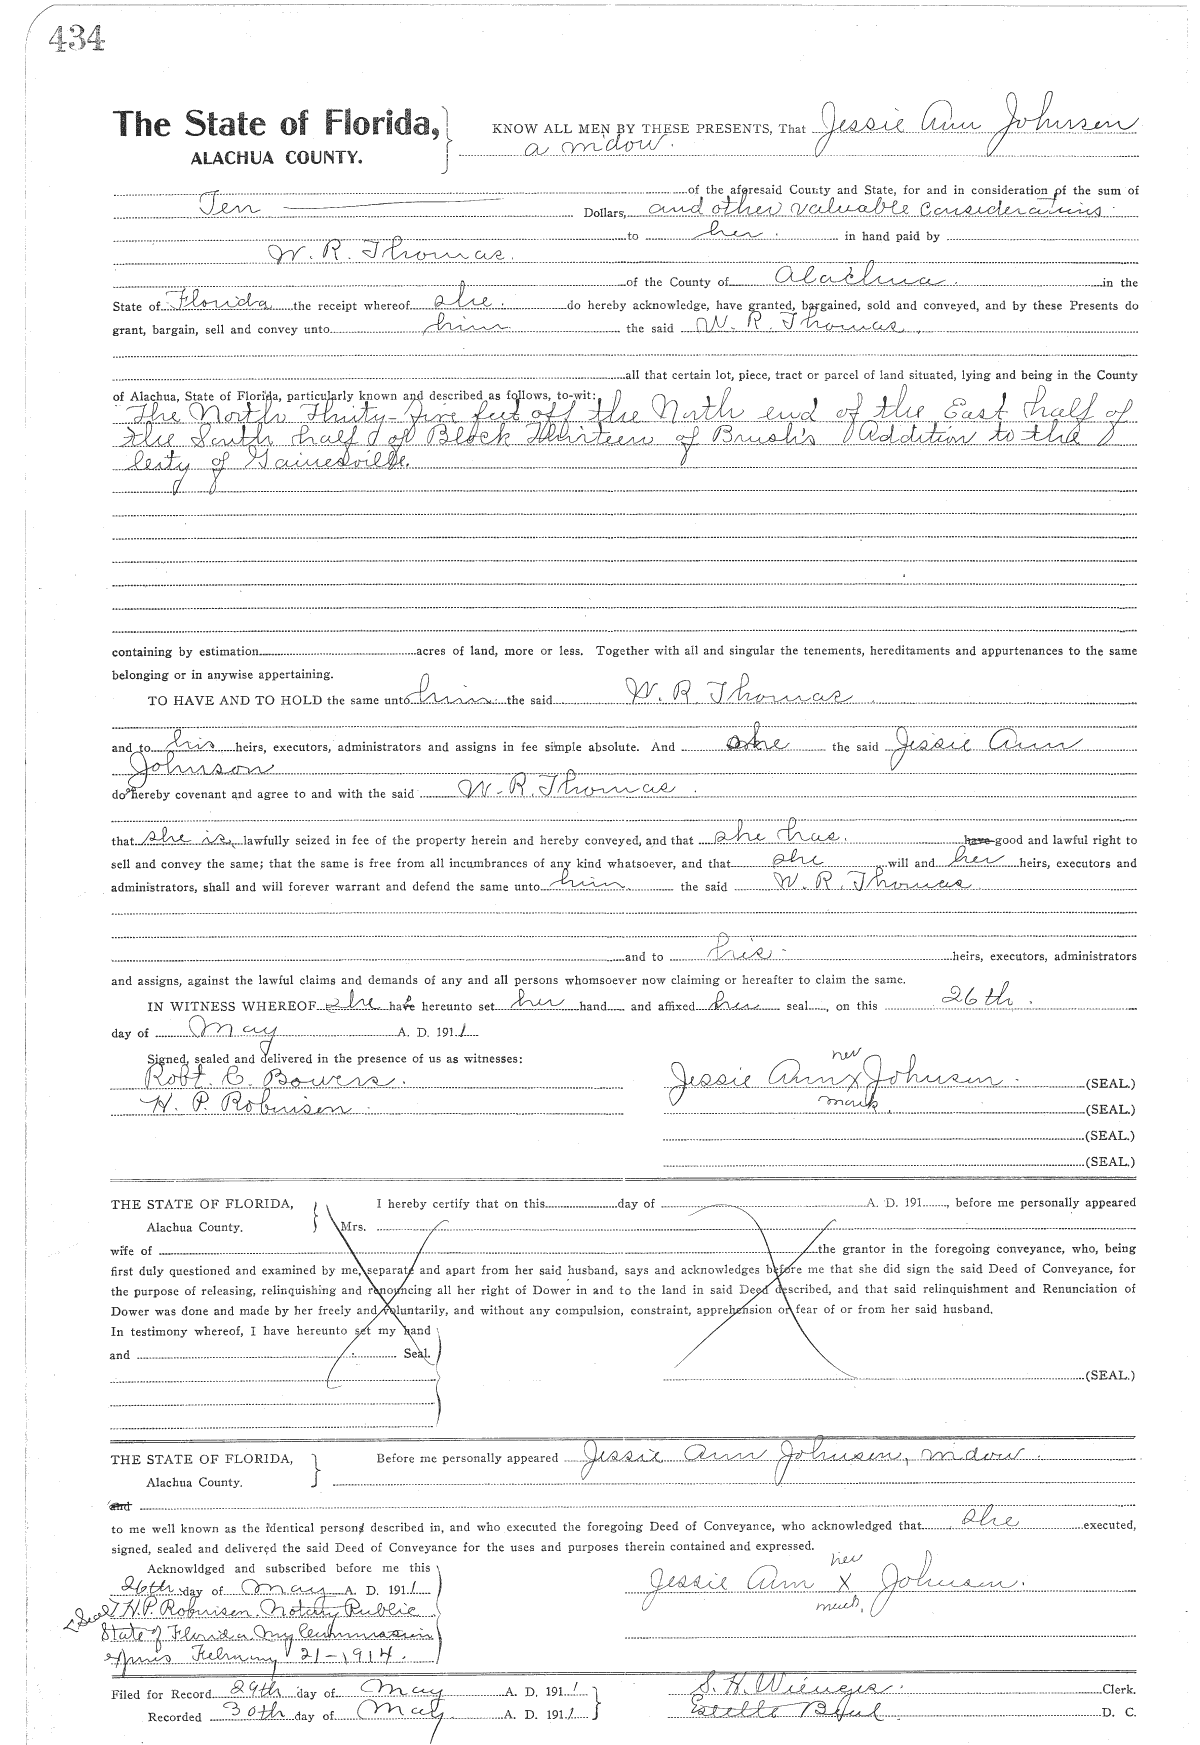 434
The State of Florida, KNOW ALL MEN BY THESE PRESENTS, That Jessie Ann Johnson
ALACHUA COUNTY. a widow.
of the aforesaid County and State, for and in consideration of the sum of
Ten Dollars, and other valuable considerations
to her in hand paid by
W. R. Thomas.
of the County of Alachua in the
State of Florida the receipt whereof she do hereby acknowledge, have granted, bargained, sold and conveyed, and by these Presents do
grant, bargain, sell and convey unto him the said W. R. Thomas
all that certain lot, piece, tract or parcel of land situated, lying and being in the County
of Alachua, State of Florida, particularly known and described as follows, to-wit:
The North Thirty-five feet off the North end of the East half of
the South half of Block Thirteen of Brush's Addition to the
City of Gainesville.
containing by estimation acres of land, more or less. Together with all and singular the tenements, hereditaments and appurtenances to the same
belonging or in anywise appertaining.
TO HAVE AND TO HOLD the same unto him the said W. R. Thomas
and to his heirs, executors, administrators and assigns in fee simple absolute. And she the said Jessie Ann
Johnson
do hereby covenant and agree to and with the said W. R. Thomas
that she is lawfully seized in fee of the property herein and hereby conveyed, and that she has have good and lawful right to
sell and convey the same; that the same is free from all incumbrances of any kind whatsoever, and that she will and her heirs, executors and
administrators, shall and will forever warrant and defend the same unto him the said W. R. Thomas
and to his heirs, executors, administrators
and assigns, against the lawful claims and demands of any and all persons whomsoever now claiming or hereafter to claim the same.
IN WITNESS WHEREOF she have hereunto set her hand and affixed her seal, on this 26th
day of May A. D. 1911
Signed, sealed and delivered in the presence of us as witnesses: her
Robt. E. Bowers. Jessie Ann X Johnson (SEAL.)
H. P. Robinson mark. (SEAL.)
(SEAL.)
(SEAL.)
THE STATE OF FLORIDA, I hereby certify that on this day of A. D. 191 , before me personally appeared
Alachua County. Mrs.
wife of the grantor in the foregoing conveyance, who, being
first duly questioned and examined by me, separate and apart from her said husband, says and acknowledges before me that she did sign the said Deed of Conveyance, for
the purpose of releasing, relinquishing and renouncing all her right of Dower in and to the land in said Deed described, and that said relinquishment and Renunciation of
Dower was done and made by her freely and voluntarily, and without any compulsion, constraint, apprehension or fear of or from her said husband.
In testimony whereof, I have hereunto set my hand
and Seal.
(SEAL.)
THE STATE OF FLORIDA, Before me personally appeared Jessie Ann Johnson, widow.
Alachua County.
and
to me well known as the identical persons described in, and who executed the foregoing Deed of Conveyance, who acknowledged that she executed,
signed, sealed and delivered the said Deed of Conveyance for the uses and purposes therein contained and expressed.
Acknowldged and subscribed before me this her
26th day of May A. D. 1911 Jessie Ann X Johnson.
Seal H. P. Robinson Notary Public mark.
State of Florida My Commission
expires February 21-1914.
Filed for Record 29th day of May A. D. 1911 S. H. Wienges Clerk.
Recorded 30th day of May A. D. 1911 D. C.